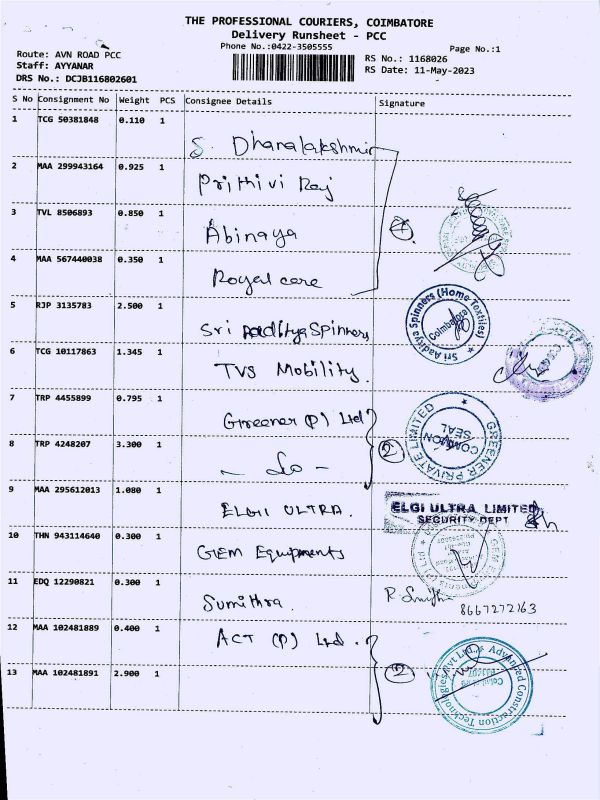 THE PROFESSIONAL COURIERS, COIMBATORE
Delivery Runsheet - PCC
Phone No.:0422-3505555
Page No.:1
Route: AVN ROAD PCC
Staff: AYYANAR
DRS No.: DCJB116802601
RS No.: 1168026
RS Date: 11-May-2023
S No Consignment No Weight PCS Consignee Details Signature
1 TCG 50381848 0.110 1 S. Dhanalakshmi
2 MAA 299943164 0.925 1 Prithivi Raj
3 TVL 8506893 0.850 1 Abinaya
4
4 MAA 567440038 0.350 1 Royal care
5 RJP 3135783 2.500 1 Sri Aaditya Spinners
Sri Aaditya Spinners (Home Textiles)
Coimbatore
6 TCG 10117863 1.345 1 TVS Mobility.
7 TRP 4455899 0.795 1 Greener (P) Ltd
GREENER PRIVATE LIMITED
COMMON SEAL
8 TRP 4248207 3.300 1 - Do -
2
9 MAA 295612013 1.080 1 ELGII ULTRA.
ELGI ULTRA LIMITED
SECURITY DEPT
10 THN 943114640 0.300 1 GEM Equipments
11 EDQ 12290821 0.300 1 Sumithra.
8667272163
12 MAA 102481889 0.400 1 ACT (P) Ltd.
2
13 MAA 102481891 2.900 1
Advanced Construction Technologies Pvt Ltd.,